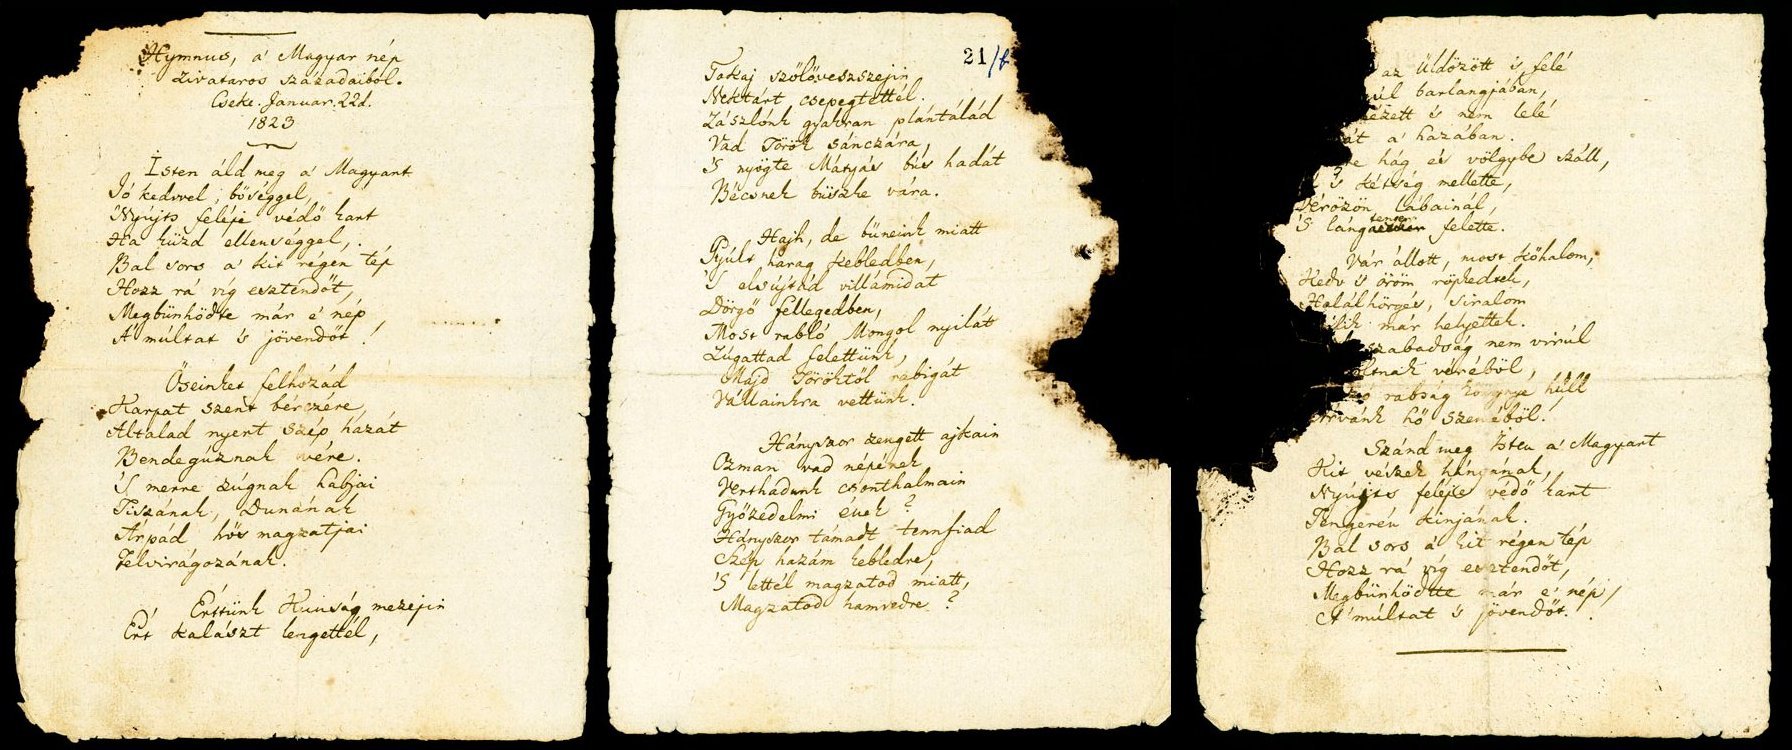 Hymnus, a' Magyar nép
zivataros századaiból.
Cseke. Januar. 22d.
1823
Isten áld meg a' Magyart
Jó kedvvel, bőséggel,
Nyújts feléje védő kart
Ha küzd ellenséggel,
Bal sors a' kit régen tép
Hozz rá víg esztendőt,
Megbünhödte már e' nép
A' múltat 's jövendőt!
Őseinket felhozád
Kárpát szent bérczére,
Általad nyert szép hazát
Bendegúznak vére.
'S merre zúgnak habjai
Tiszának, Dunának
Árpád hős magzatjai
Felvirágozának.
Értünk Kunság mezejin
Ért kalászt lengettél,
21/b
Tokaj szőlőveszszejin
Nektárt csepegtettél.
Zászlónk gyakran plántálád
Vad Török sánczára,
'S nyögte Mátyás bús hadát
Bécsnek büszke vára.
Hajh, de bűneink miatt
Gyúlt harag kebledben,
'S elsújtád villámidat
Dörgő fellegedben,
Most rabló Mongol nyilát
Zúgattad felettünk,
Majd Töröktől rabigát
Vállainkra vettünk.
Hányszor zengett ajkain
Ozman vad népének
Verthadunk csonthalmain
Győzedelmi ének?
Hányszor támadt tennfiad
Szép hazám kebledre,
'S lettél magzatod miatt,
Magzatod hamvedre?
az üldözött 's felé
barlangjában,
és nem lelé
a' hazában.
hág és völgybe száll,
's kétség mellette,
Vérözön lábainál
'S lángtenger felette.
Vár állott, most kőhalom,
Kedv 's öröm röpkedtek,
Halálhörgés, siralom
már helyettek.
szabadság nem virúl
véréből,
rabság könnye hull
hő szeméből.
Szánd meg Isten a' Magyart
Kit vészek hányanak,
Nyújts feléje védő kart
Tengerén kínjának.
Bal sors a' kit régen tép
Hozz rá víg esztendőt,
Megbünhödte már e' nép
A' múltat 's jövendőt.